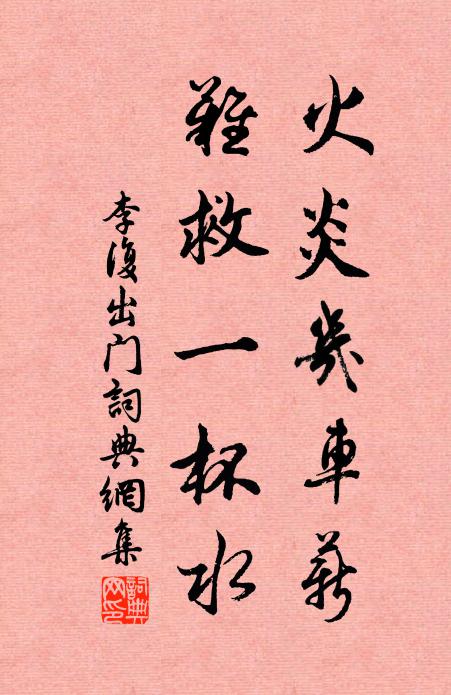 火炎幾車薪
難救一杯水
李復出门詞典網集
詞典網印